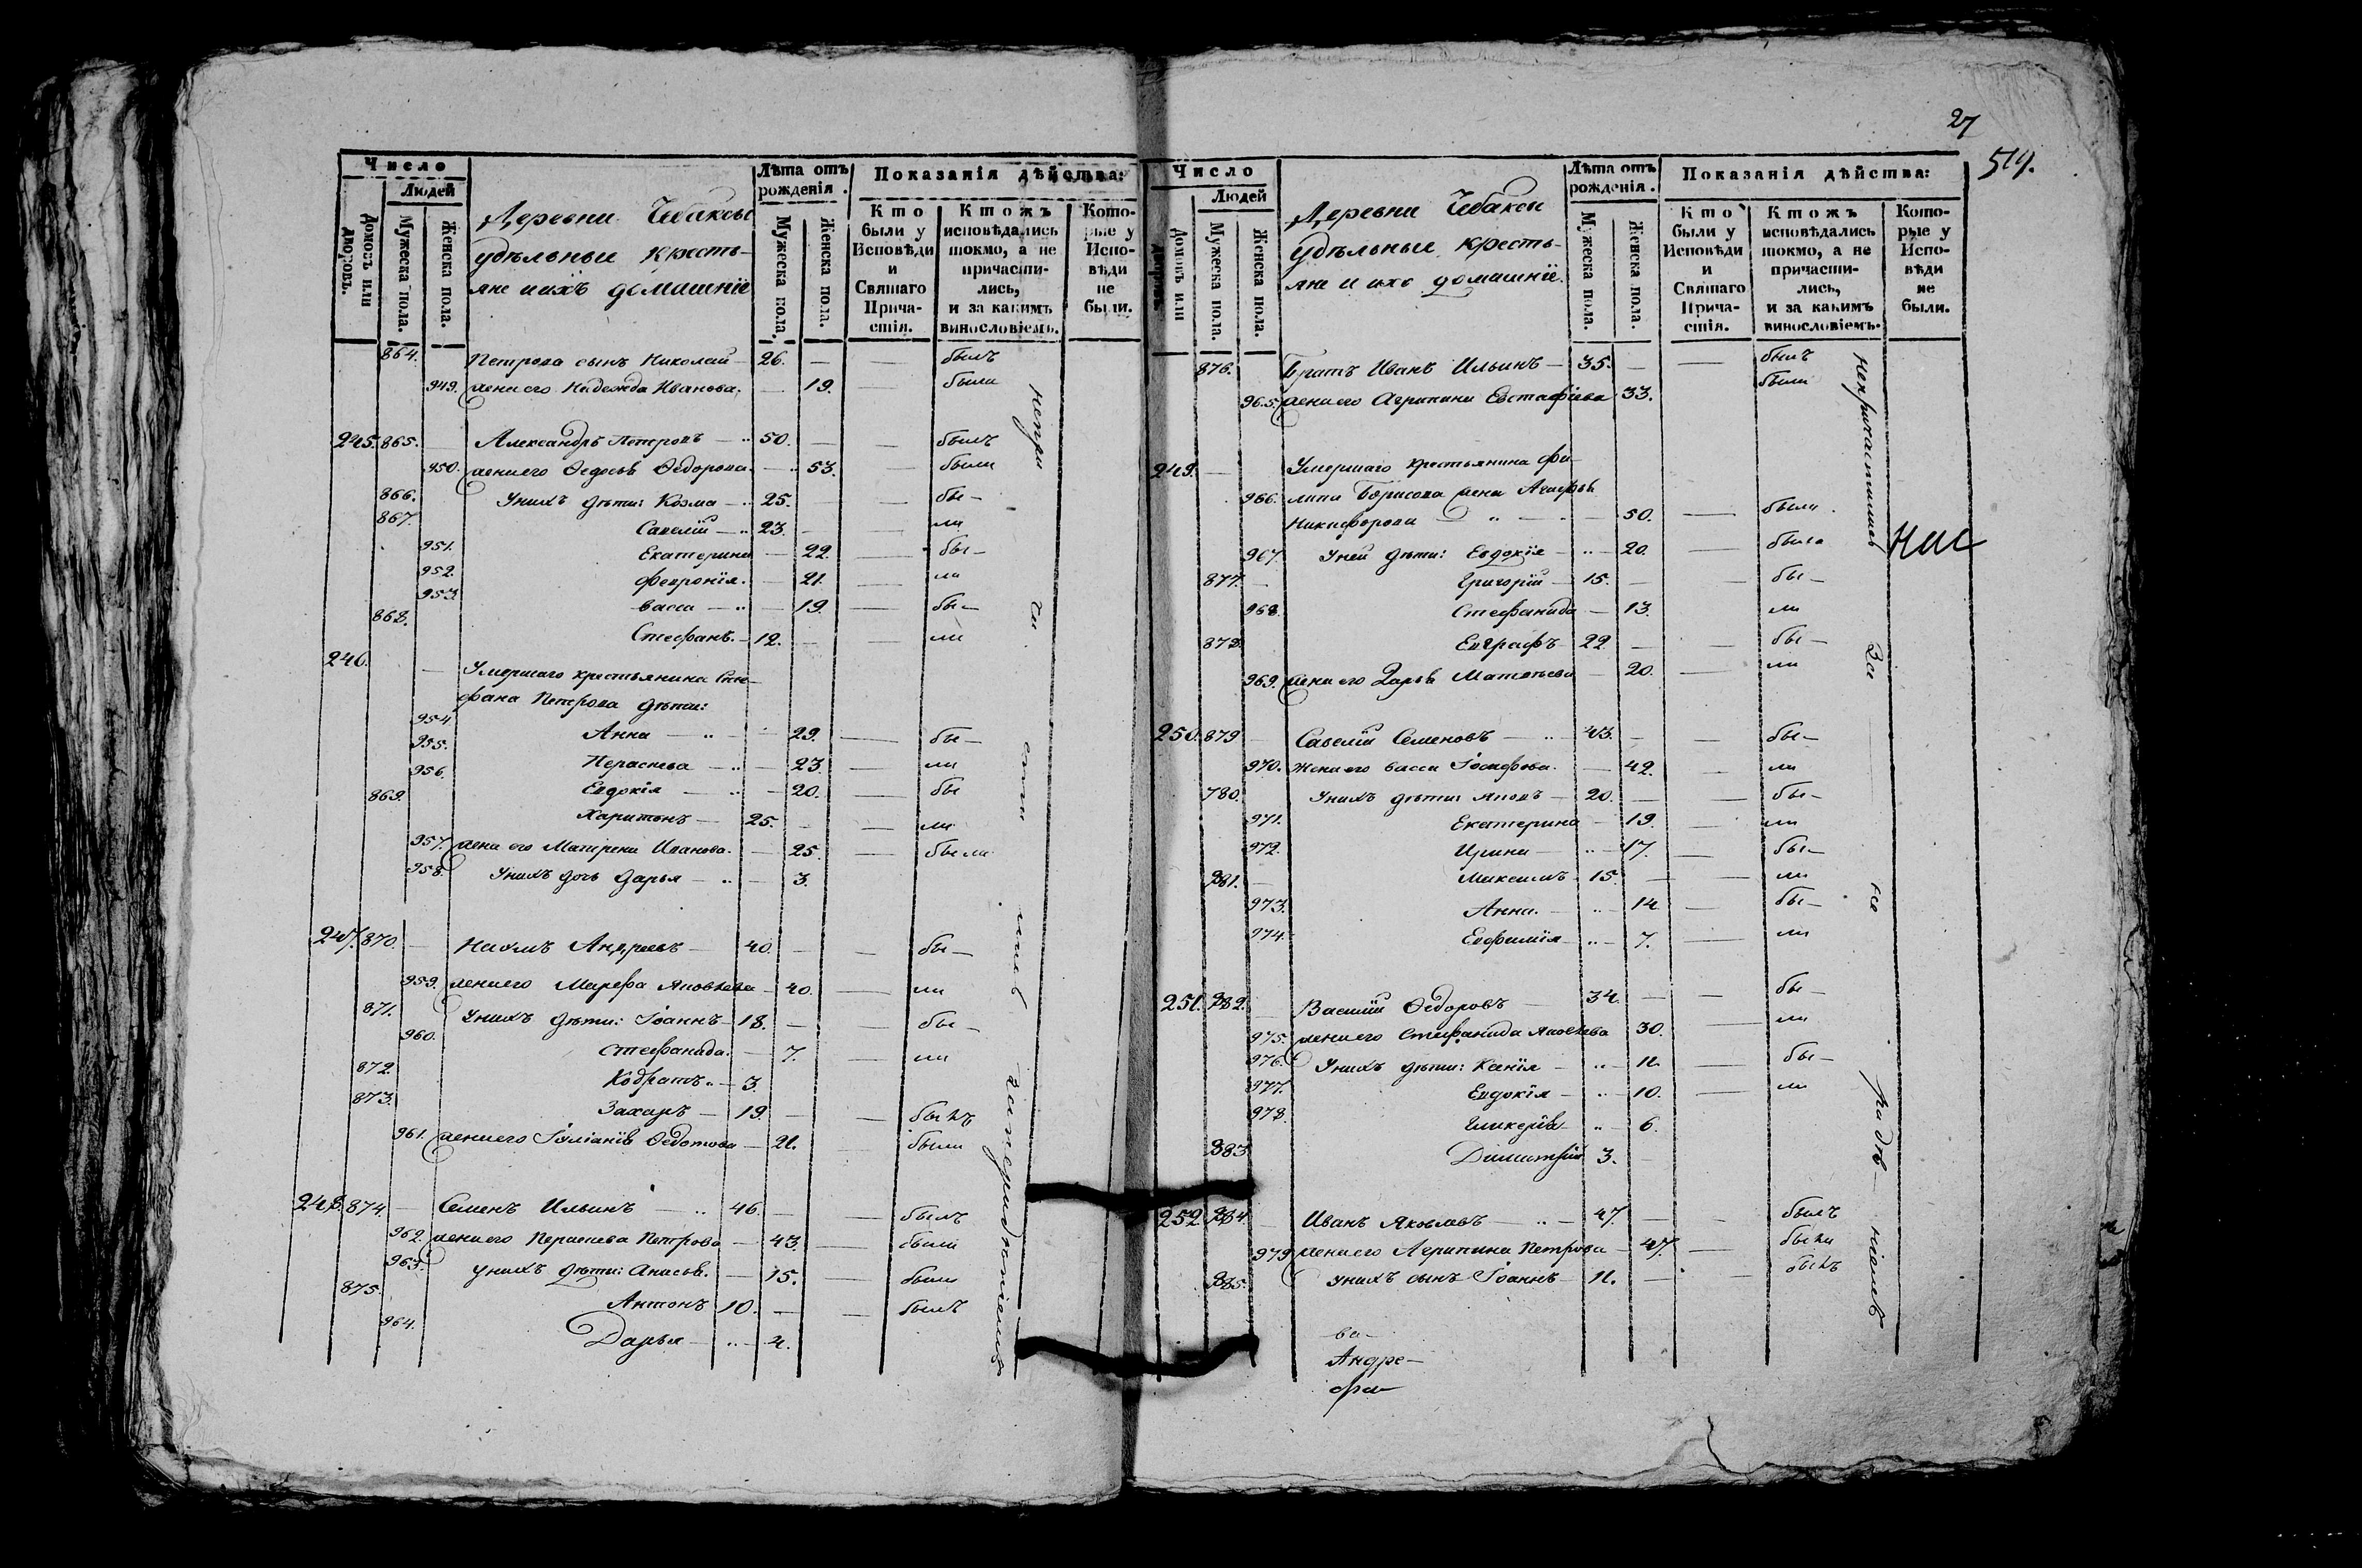 27
519.
Число
Людей
Домовъ или дворовъ.
Мужеска пола.
Женска пола.
Деревни Чебаксы
удѣльные кресть-
яне и ихъ домашніе
Лѣта отъ рожденія.
Мужеска пола.
Женска пола.
Показанія дѣйства:
Кто были у Исповѣди и Святаго Прича-стія.
Ктожъ исповѣдались токмо, а не причасти-лись, и за какимъ винословіемъ.
Кото-рые у Испо-вѣди не были.
864. Петрова сынъ Николай — 26. — — былъ
949. жена его Надежда Иванова. — 19. — была
245. 865. — Александръ Петровъ — 50. — — былъ
950. жена его Ѳедосья Ѳедорова — 53. — была
866. У нихъ дѣти: Козма — 25. — — бы-
867. Савелій — 23. — — ли
951. Екатерина — 22. — бы-
952. Феvронія. — 21. — ли
953. Васса — 19. — бы-
868. Стефанъ. — 12. — — ли
246. — Умершаго крестьянина Сте-
фана Петрова дѣти:
954. Анна — 29. — бы-
955. Параскева — 23. — ли
956. Евдокія — 20. — бы
869. Харитонъ — 25. — — ли
957. жена его Матрена Иванова. — 25. — была
958. У нихъ дочь Дарья — 3.
247. 870. — Наумъ Андреевъ — 40. — — бы-
959. жена его Марѳа Яковлева — 40. — ли
871. У нихъ дѣти: Іоаннъ — 18. — — бы-
960. Стефанида. — 7. — ли
872. Кодратъ — 3.
873. Захаръ — 19. — — былъ
961. жена его Іуліанія Ѳедотова — 21. — была
248. 874. — Семенъ Ильинъ — 46. — — былъ
962. жена его Параскева Петрова — 43. — была
963. У нихъ дѣти: Анисья. — 15. — была
875. Антонъ 10. — — былъ
964. Дарья — 4.
непри ча сти лись за нерадѣніемъ
Число
Людей
Домовъ или дворовъ.
Мужеска пола.
Женска пола.
Деревни Чебаксы
удѣльные кресть-
яне и ихъ домашніе.
Лѣта отъ рожденія.
Мужеска пола.
Женска пола.
Показанія дѣйства:
Кто были у Исповѣди и Святаго Прича-стія.
Ктожъ исповѣдались токмо, а не причасти-лись, и за какимъ винословіемъ.
Кото-рые у Испо-вѣди не были.
876. Братъ Иванъ Ильинъ — 35. — — былъ
965. жена его Агрипина Евстафіева 33. была
249. — Умершаго крестьянина Фи-
966. липа Борисова жена Агафья
Никифорова — 50. — была.
967. У ней дѣти: Евдокія — 20. — была
877. — Григорій — 15. — — бы-
968. Стефанида — 13. — ли
878. Евграфъ — 22 — — бы-
969. жена его Дарья Матвѣева — 20. — ли
250. 879 — Савелій Семеновъ — 43. — — бы-
970. жена его Васса Іосифова. — 42. — ли
780. У нихъ дѣти: Яковъ — 20. — — бы-
971. Екатерина — 19. — ли
972. Ирина — 17. — бы-
881. — Максимъ — 15. — — ли
973. Анна. — 14 — бы-
974. Евфимія — 7. — ли
251. 882. — Василій Ѳедоровъ — 34. — — бы-
975. жена его Стефанида Яковлева 30. — ли
976. У нихъ дѣти: Ксенія — 12. — бы-
977. Евдокія — 10. — ли
978. Гликерія — 6.
883 Димитрій 3. —
252. 884 — Иванъ Яковлевъ — 47. — — былъ
979 жена его Агрипина Петрова — 47. — была
885. У нихъ сынъ Іоаннъ — 11. — — былъ
непричастились за не радѣ ніемъ
ва-
Андре-